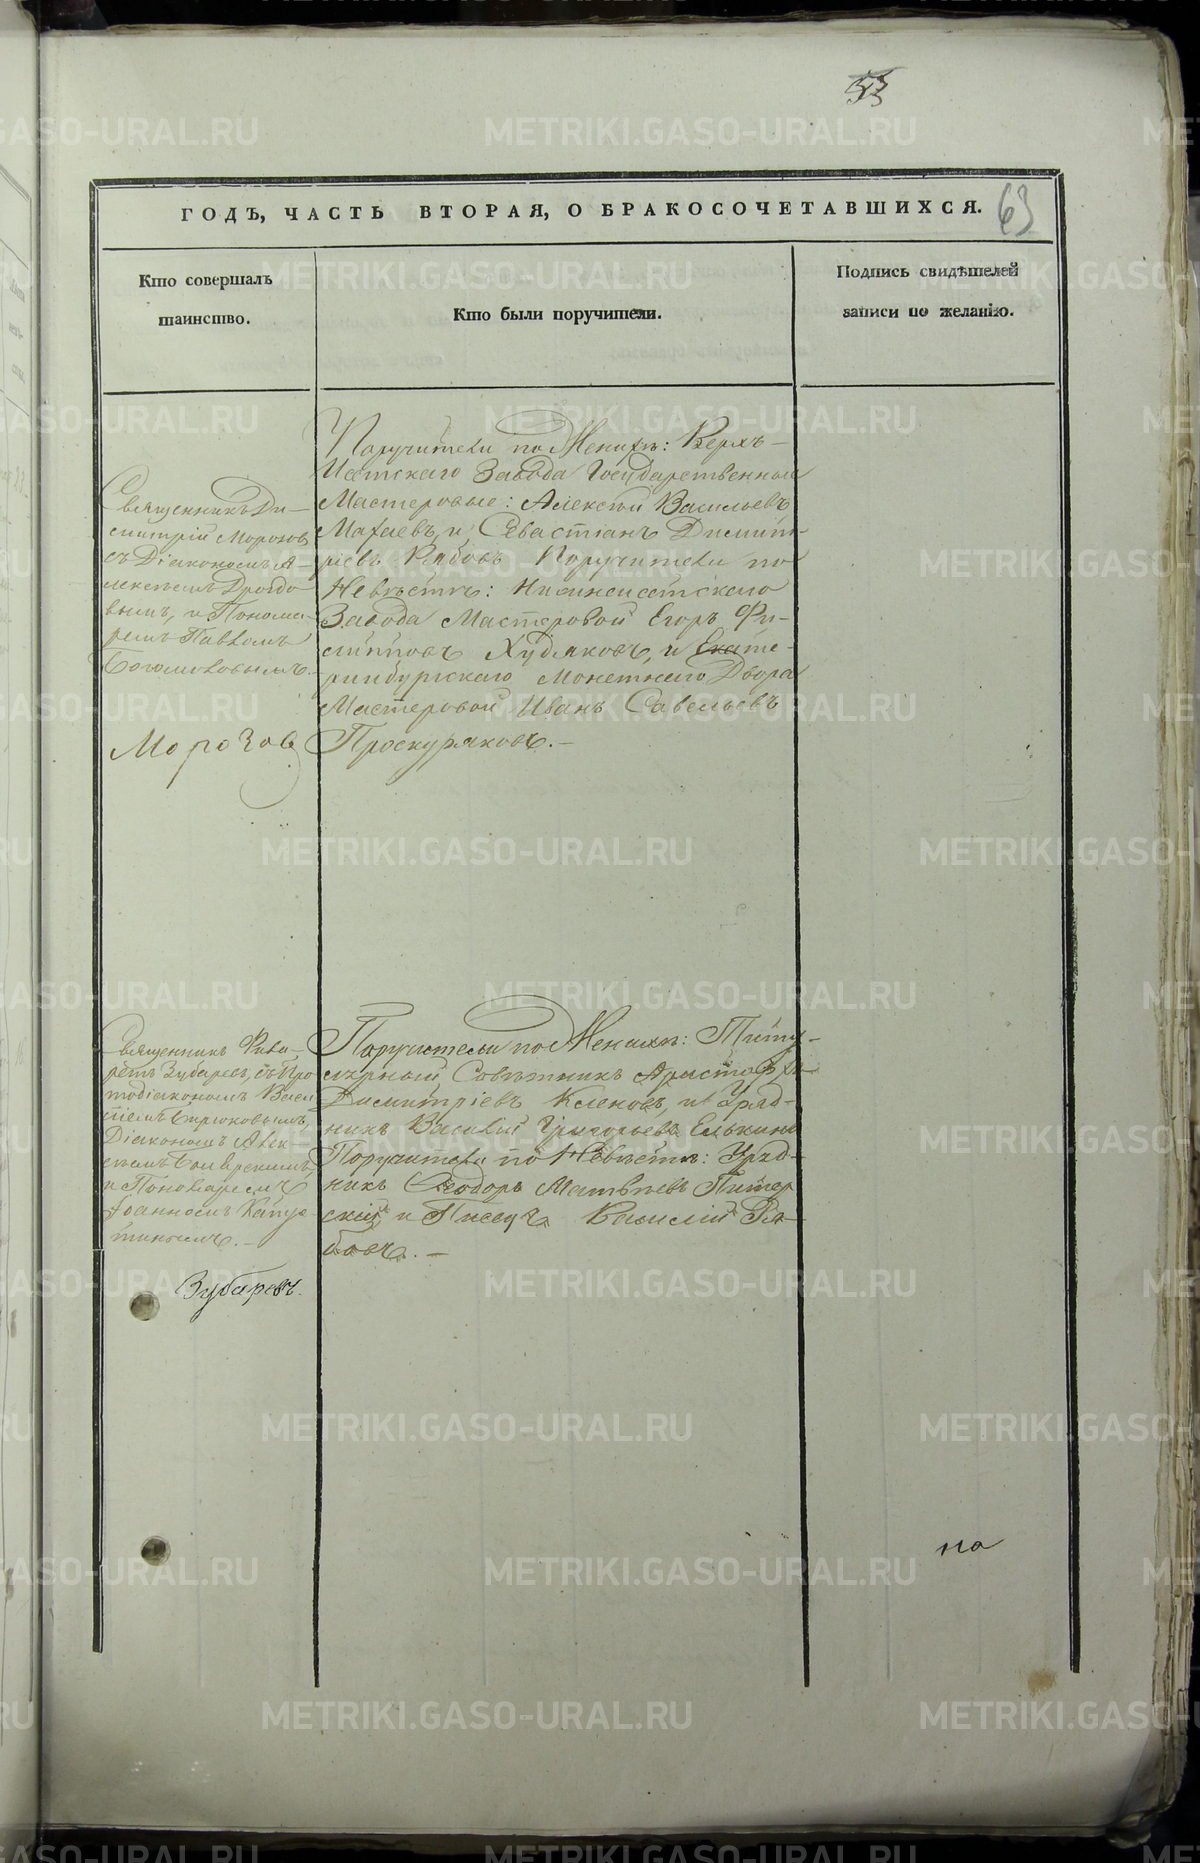 53
ГОДЪ, ЧАСТЬ ВТОРАЯ, О БРАКОСОЧЕТАВШИХСЯ.
63
Кто совершалъ
таинство.
Кто были поручители.
Подпись свидѣтелей
записи по желанію.
Священникъ Ди-
митрій Морозовъ
съ Діакономъ А-
лексѣемъ Дроздо
вымъ, и Понома-
ремъ Павломъ
Богомоловымъ.
Морозов
Поручители по Женихѣ: Верхъ-
Исетскаго Завода Государственные
Мастеровые: Алексѣй Васильевъ
Махаевъ, и Севастіанъ Димит-
ріевъ Рябовъ Поручители по
Невѣстѣ: Нижнеисетскаго
Завода Мастеровой Егоръ Фи-
липповъ Худяковъ, и Екате-
ринбургскаго Монетнаго Двора
Мастеровой Иванъ Савельевъ
Проскуряковъ.-
Священникъ
Зубаревъ, съ Про
тодіакономъ Васи
ліемъ Бирюковымъ,
Діакономъ Алек-
и Пономаремъ
Іоанномъ Капус-
тинымъ.-
Зубаревъ.
Поручители по Женихѣ: Титу-
лярный Совѣтникъ
Димитріевъ Кленовъ, и Уряд-
никъ Василій Григорьевъ Елькинъ
Поручители по Невѣстѣ: Уряд-
никъ Ѳеодоръ Матвѣевъ Питер
скій, и Писецъ Василій Ря-
бовъ.-
на
METRIKI.GASO-URAL.RU